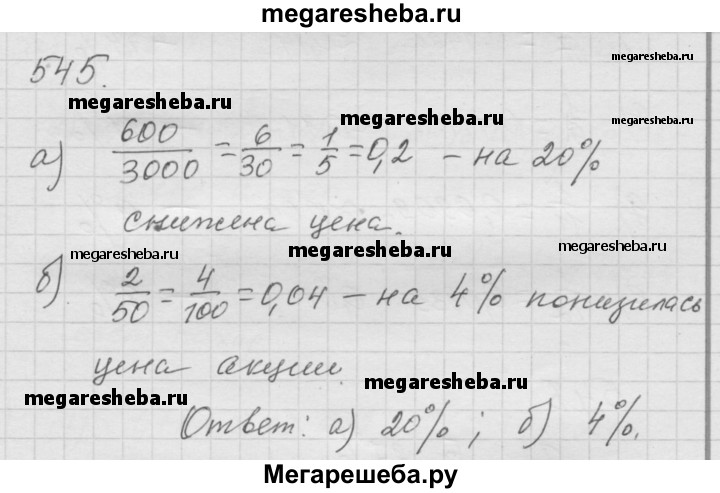 megaresheba.ru
545.
megaresheba.ru
megaresheba.ru
megaresheba.ru
а) 600/3000 = 6/30 = 1/5 = 0,2 – на 20%
снижена цена.
megaresheba.ru
megaresheba.ru
megaresheba.ru
б) 2/50 = 4/100 = 0,04 – на 4% понизилась
цена акции.
megaresheba.ru
megaresheba.ru
Ответ: а) 20%; б) 4%.
Мегарешеба.ру